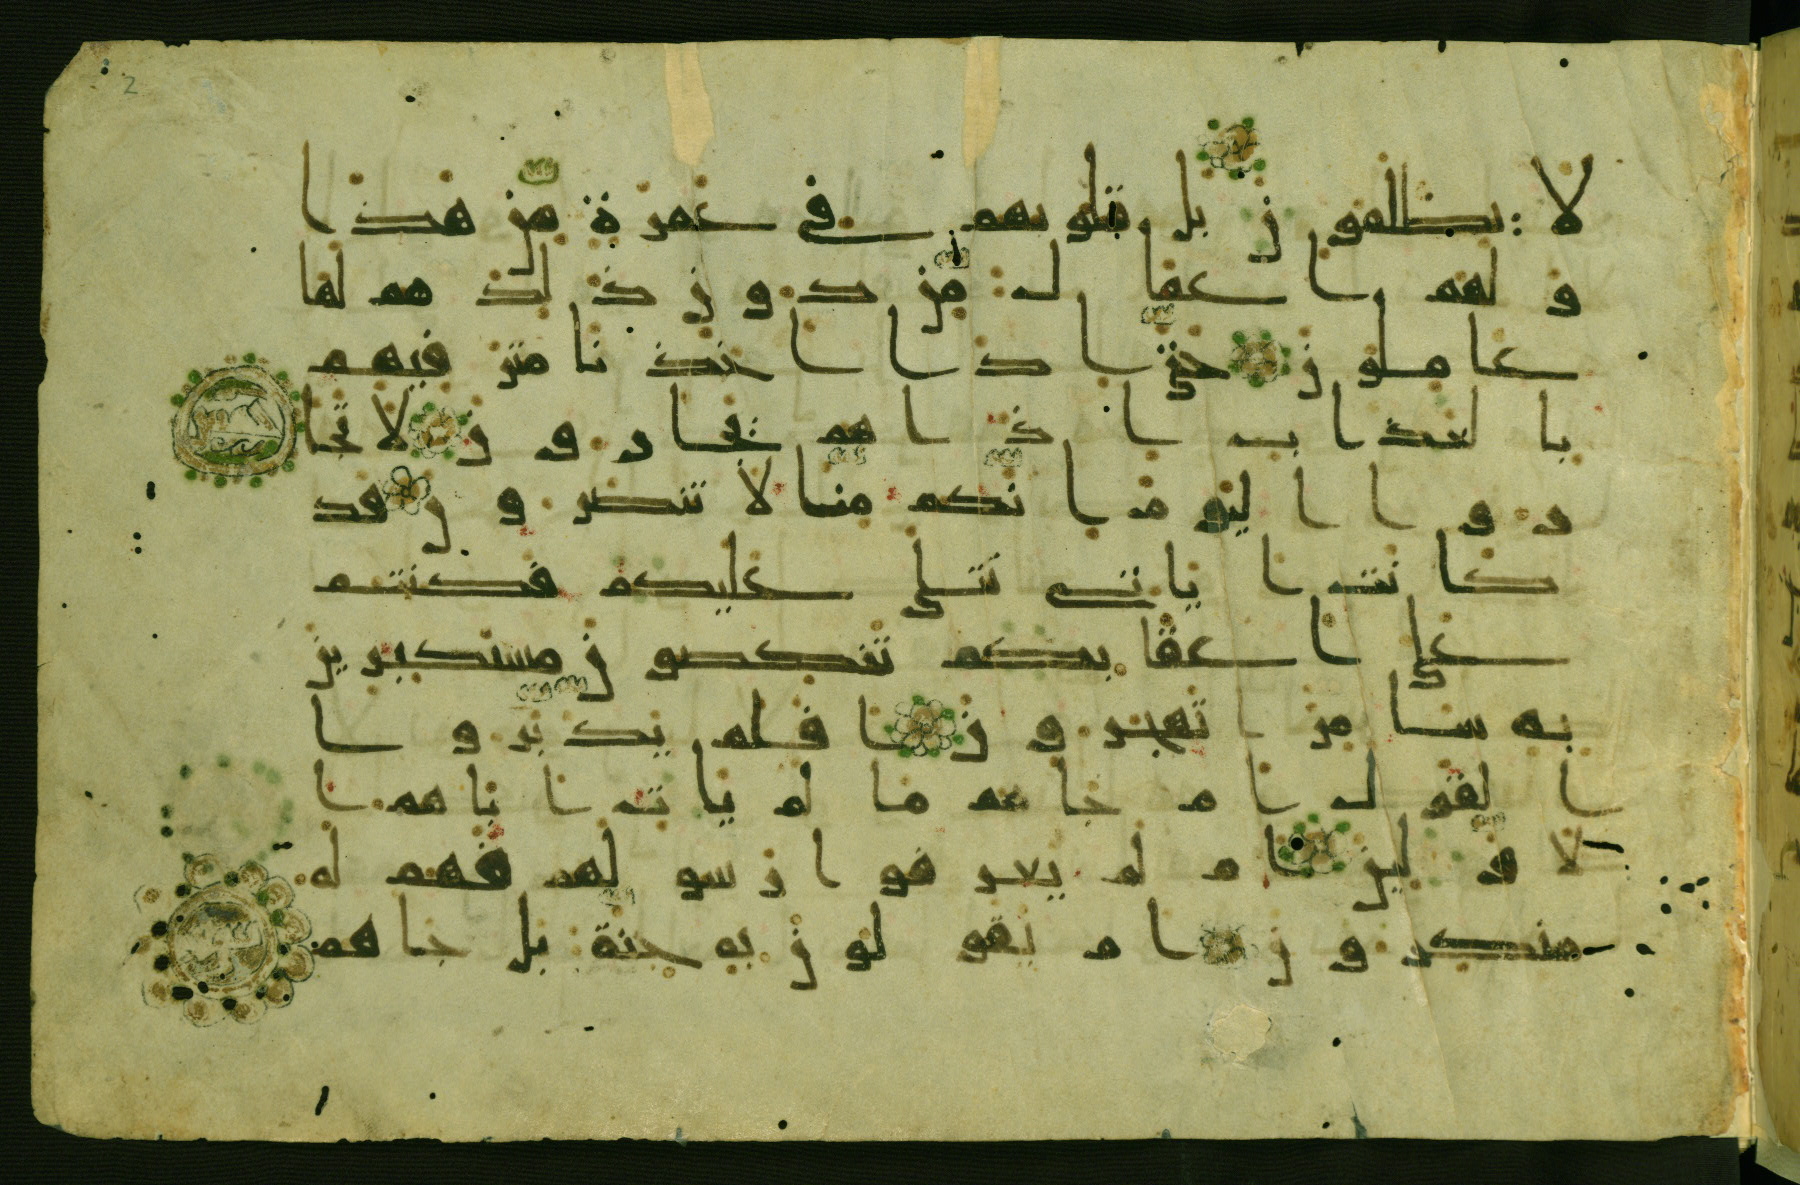 لا يظلمون بل قلوبهم في غمرة من هذا
ولهم أعمال من دون ذلك هم لها
عاملون حتى إذا أخذنا مترفيهم
بالعذاب إذا هم يجأرون لا تجأ
روا اليوم إنكم منا لا تنصرون قد
كانت آياتي تتلى عليكم فكنتم
على أعقابكم تنكصون مستكبرين
به سامرا تهجرون أفلم يدبروا
القول أم جاءهم ما لم يأت آباءهم ا
لأولين أم لم يعرفوا رسولهم فهم له
منكرون أم يقولون به جنة بل جاءهم
2